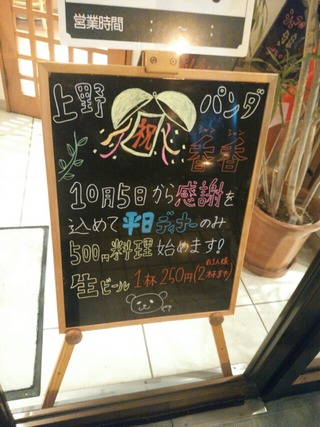 営業時間
上野 パンダ
祝
シャン シャン
香香
10月5日から感謝を
込めて平日ディナーのみ
500円料理 始めます!
お1人様
生ビール 1杯 250円(2杯まで)